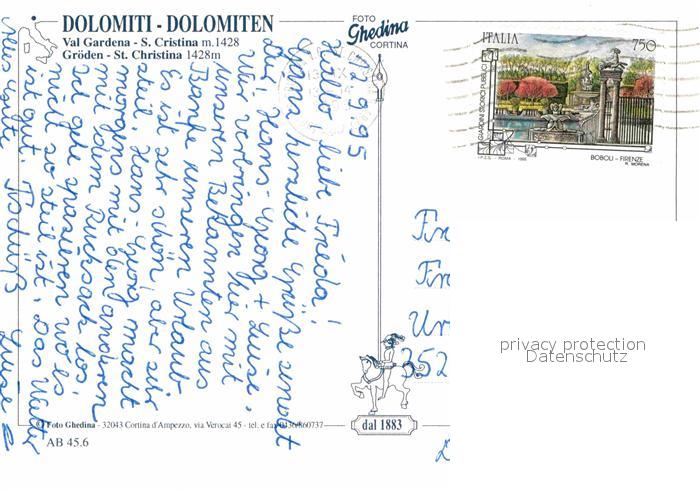 DOLOMITI - DOLOMITEN
Val Gardena - S. Cristina m.1428
Gröden - St. Christina 1428m
FOTO
Ghedina
CORTINA
ITALIA
750
GIARDINI STORICI PUBBLICI
I.P.Z.S. - ROMA - 1995
BOBOLI - FIRENZE
R. MORENA
12.9.95
Hallo liebe Frieda!
Ganz herzliche Grüße sendet
dir Hans-Georg + Luise,
Wir verbringen hier mit
unseren Bekannten aus
Barfe unseren Urlaub
Es ist sehr schön, aber sehr
steil, Hans-Georg macht
morgens mit den anderen
mit dem Rucksack los,
Ich gehe spazieren wo es
nicht so steil ist. Das Wetter
ist gut.
Alles Gute Tschüß Luise
Fr
Fr
Ur
352
privacy protection
Datenschutz
dal 1883
© Foto Ghedina - 32043 Cortina d'Ampezzo, via Verocai 45 - tel. e fax 0436/860737
AB 45.6